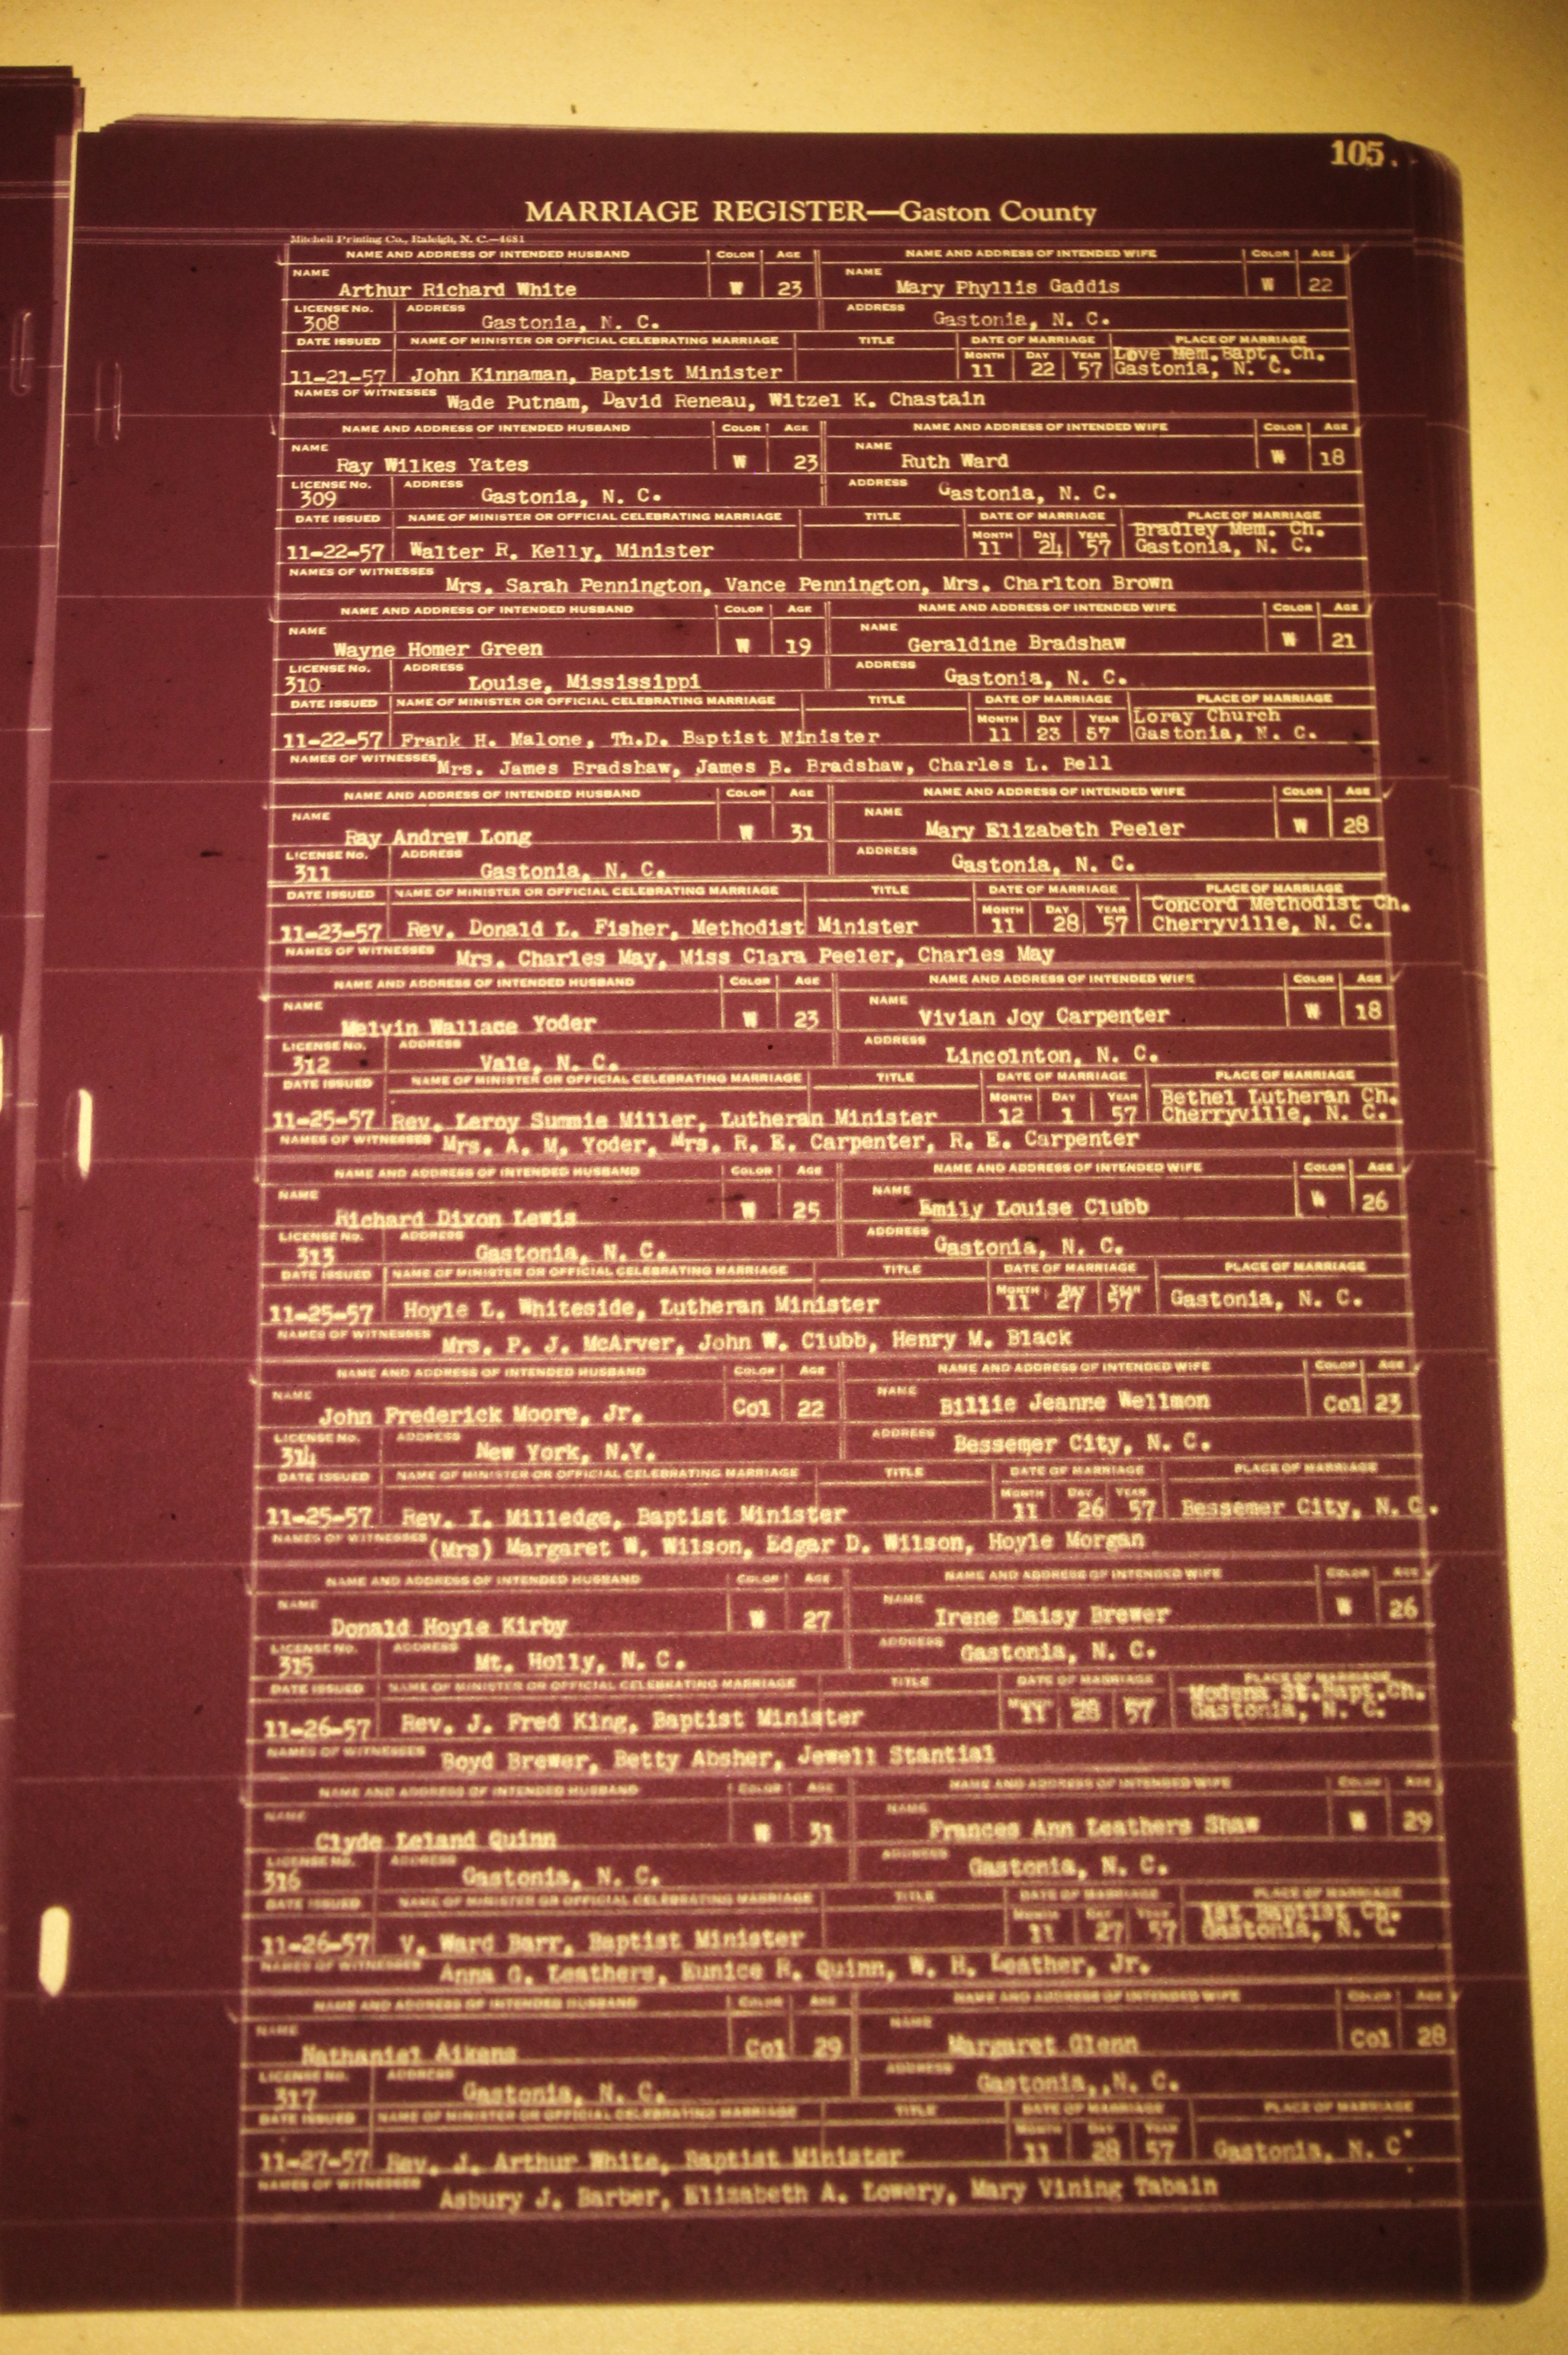 105.
MARRIAGE REGISTER—Gaston County
Mitchell Printing Co., Raleigh, N. C.—4681
NAME AND ADDRESS OF INTENDED HUSBAND COLOR AGE NAME AND ADDRESS OF INTENDED WIFE COLOR AGE
NAME Arthur Richard White W 23 NAME Mary Phyllis Gaddis W 22
LICENSE No. 308 ADDRESS Gastonia, N. C. ADDRESS Gastonia, N. C.
DATE ISSUED NAME OF MINISTER OR OFFICIAL CELEBRATING MARRIAGE TITLE DATE OF MARRIAGE PLACE OF MARRIAGE
MONTH DAY YEAR Love Mem.Bapt. Ch.
11-21-57 John Kinnaman, Baptist Minister 11 22 57 Gastonia, N. C.
NAMES OF WITNESSES Wade Putnam, David Reneau, Witzel K. Chastain
NAME AND ADDRESS OF INTENDED HUSBAND COLOR AGE NAME AND ADDRESS OF INTENDED WIFE COLOR AGE
NAME Ray Wilkes Yates W 23 NAME Ruth Ward W 18
LICENSE No. 309 ADDRESS Gastonia, N. C. ADDRESS Gastonia, N. C.
DATE ISSUED NAME OF MINISTER OR OFFICIAL CELEBRATING MARRIAGE TITLE DATE OF MARRIAGE PLACE OF MARRIAGE
MONTH DAY YEAR Bradley Mem. Ch.
11-22-57 Walter R. Kelly, Minister 11 24 57 Gastonia, N. C.
NAMES OF WITNESSES Mrs. Sarah Pennington, Vance Pennington, Mrs. Charlton Brown
NAME AND ADDRESS OF INTENDED HUSBAND COLOR AGE NAME AND ADDRESS OF INTENDED WIFE COLOR AGE
NAME Wayne Homer Green W 19 NAME Geraldine Bradshaw W 21
LICENSE No. 310 ADDRESS Louise, Mississippi ADDRESS Gastonia, N. C.
DATE ISSUED NAME OF MINISTER OR OFFICIAL CELEBRATING MARRIAGE TITLE DATE OF MARRIAGE PLACE OF MARRIAGE
MONTH DAY YEAR Loray Church
11-22-57 Frank H. Malone, Th.D. Baptist Minister 11 23 57 Gastonia, N. C.
NAMES OF WITNESSES Mrs. James Bradshaw, James B. Bradshaw, Charles L. Bell
NAME AND ADDRESS OF INTENDED HUSBAND COLOR AGE NAME AND ADDRESS OF INTENDED WIFE COLOR AGE
NAME Ray Andrew Long W 31 NAME Mary Elizabeth Peeler W 28
LICENSE No. 311 ADDRESS Gastonia, N. C. ADDRESS Gastonia, N. C.
DATE ISSUED NAME OF MINISTER OR OFFICIAL CELEBRATING MARRIAGE TITLE DATE OF MARRIAGE PLACE OF MARRIAGE
MONTH DAY YEAR Concord Methodist Ch.
11-23-57 Rev. Donald L. Fisher, Methodist Minister 11 28 57 Cherryville, N. C.
NAMES OF WITNESSES Mrs. Charles May, Miss Clara Peeler, Charles May
NAME AND ADDRESS OF INTENDED HUSBAND COLOR AGE NAME AND ADDRESS OF INTENDED WIFE COLOR AGE
NAME Melvin Wallace Yoder W 23 NAME Vivian Joy Carpenter W 18
LICENSE No. 312 ADDRESS Vale, N. C. ADDRESS Lincolnton, N. C.
DATE ISSUED NAME OF MINISTER OR OFFICIAL CELEBRATING MARRIAGE TITLE DATE OF MARRIAGE PLACE OF MARRIAGE
MONTH DAY YEAR Bethel Lutheran Ch.
11-25-57 Rev. Leroy Summie Miller, Lutheran Minister 12 1 57 Cherryville, N. C.
NAMES OF WITNESSES Mrs. A. M. Yoder, Mrs. R. E. Carpenter, R. E. Carpenter
NAME AND ADDRESS OF INTENDED HUSBAND COLOR AGE NAME AND ADDRESS OF INTENDED WIFE COLOR AGE
NAME Richard Dixon Lewis W 25 NAME Emily Louise Clubb W 26
LICENSE No. 313 ADDRESS Gastonia, N. C. ADDRESS Gastonia, N. C.
DATE ISSUED NAME OF MINISTER OR OFFICIAL CELEBRATING MARRIAGE TITLE DATE OF MARRIAGE PLACE OF MARRIAGE
MONTH DAY YEAR
11-25-57 Hoyle L. Whiteside, Lutheran Minister 11 27 57 Gastonia, N. C.
NAMES OF WITNESSES Mrs. P. J. McArver, John W. Clubb, Henry M. Black
NAME AND ADDRESS OF INTENDED HUSBAND COLOR AGE NAME AND ADDRESS OF INTENDED WIFE COLOR AGE
NAME John Frederick Moore, Jr. Col 22 NAME Billie Jeanne Wellmon Col 23
LICENSE No. 314 ADDRESS New York, N.Y. ADDRESS Bessemer City, N. C.
DATE ISSUED NAME OF MINISTER OR OFFICIAL CELEBRATING MARRIAGE TITLE DATE OF MARRIAGE PLACE OF MARRIAGE
MONTH DAY YEAR
11-25-57 Rev. I. Milledge, Baptist Minister 11 26 57 Bessemer City, N. C.
NAMES OF WITNESSES (Mrs) Margaret W. Wilson, Edgar D. Wilson, Hoyle Morgan
NAME AND ADDRESS OF INTENDED HUSBAND COLOR AGE NAME AND ADDRESS OF INTENDED WIFE COLOR AGE
NAME Donald Hoyle Kirby W 27 NAME Irene Daisy Brewer W 26
LICENSE No. 315 ADDRESS Mt. Holly, N. C. ADDRESS Gastonia, N. C.
DATE ISSUED NAME OF MINISTER OR OFFICIAL CELEBRATING MARRIAGE TITLE DATE OF MARRIAGE PLACE OF MARRIAGE
MONTH DAY YEAR Modena St.Bapt.Ch.
11-26-57 Rev. J. Fred King, Baptist Minister 11 28 57 Gastonia, N. C.
NAMES OF WITNESSES Boyd Brewer, Betty Absher, Jewell Stantial
NAME AND ADDRESS OF INTENDED HUSBAND COLOR AGE NAME AND ADDRESS OF INTENDED WIFE COLOR AGE
NAME Clyde Leland Quinn W 31 NAME Frances Ann Leathers Shaw W 29
LICENSE No. 316 ADDRESS Gastonia, N. C. ADDRESS Gastonia, N. C.
DATE ISSUED NAME OF MINISTER OR OFFICIAL CELEBRATING MARRIAGE TITLE DATE OF MARRIAGE PLACE OF MARRIAGE
MONTH DAY YEAR 1st Baptist Ch.
11-26-57 V. Ward Barr, Baptist Minister 11 27 57 Gastonia, N. C.
NAMES OF WITNESSES Anna G. Leathers, Eunice R. Quinn, W. H. Leather, Jr.
NAME AND ADDRESS OF INTENDED HUSBAND COLOR AGE NAME AND ADDRESS OF INTENDED WIFE COLOR AGE
NAME Nathaniel Aikens Col 29 NAME Margaret Glenn Col 28
LICENSE No. 317 ADDRESS Gastonia, N. C. ADDRESS Gastonia,,N. C.
DATE ISSUED NAME OF MINISTER OR OFFICIAL CELEBRATING MARRIAGE TITLE DATE OF MARRIAGE PLACE OF MARRIAGE
MONTH DAY YEAR
11-27-57 Rev. J. Arthur White, Baptist Minister 11 28 57 Gastonia, N. C.
NAMES OF WITNESSES Asbury J. Barber, Elizabeth A. Lowery, Mary Vining Tabain